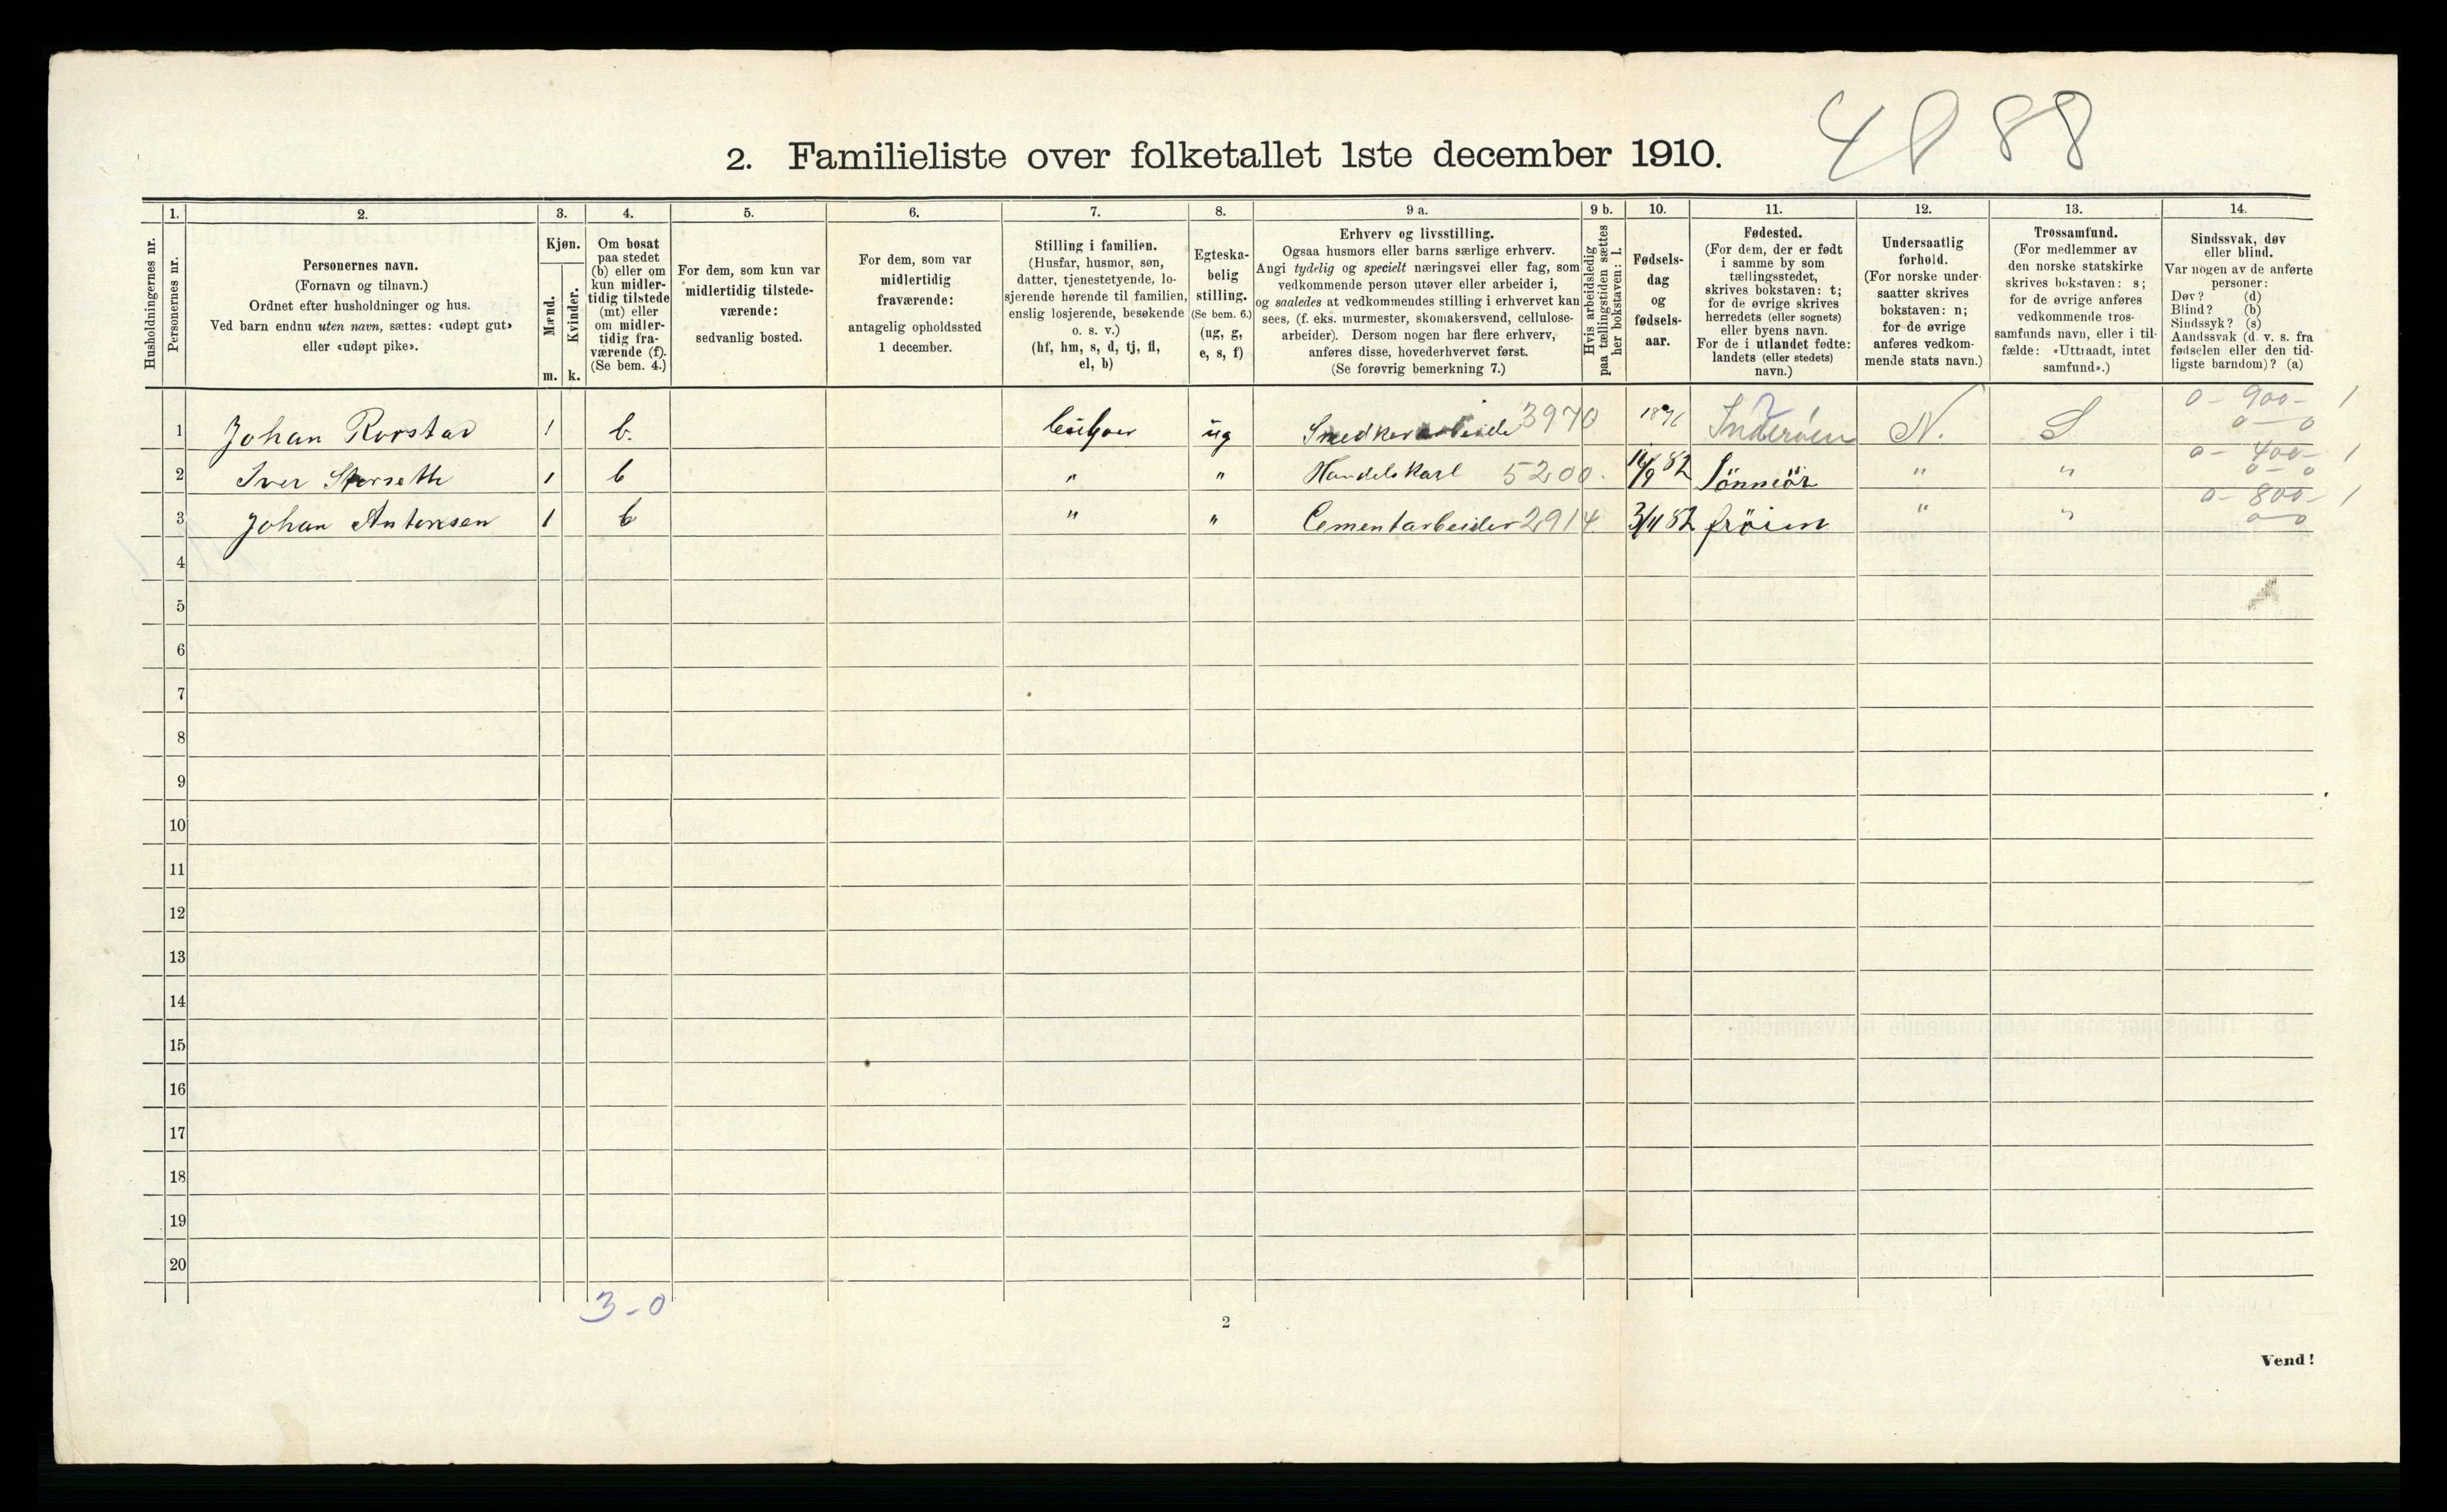 4888
2. Familieliste over folketallet 1ste december 1910.
Husholdningernes nr.
1. Personernes nr.
2. Personernes navn.
(Fornavn og tilnavn.)
Ordnet efter husholdninger og hus.
Ved barn endnu uten navn, sættes: «udøpt gut»
eller «udøpt pike».
3. Kjøn.
Mænd. Kvinder.
m. k.
4. Om bosat
paa stedet
(b) eller om
kun midler-
tidig tilstede
(mt) eller
om midler-
tidig fra-
værende (f).
(Se bem. 4.)
5. For dem, som kun var
midlertidig tilstede-
værende:
sedvanlig bosted.
6. For dem, som var
midlertidig
fraværende:
antagelig opholdssted
1 december.
7. Stilling i familien.
(Husfar, husmor, søn,
datter, tjenestetyende, lo-
sjerende hørende til familien,
enslig losjerende, besøkende
o. s. v.)
(hf, hm, s, d, tj, fl,
el, b)
8. Egteska-
belig
stilling.
(Se bem. 6.)
(ug, g,
e, s, f)
9 a. Erhverv og livsstilling.
Ogsaa husmors eller barns særlige erhverv.
Angi tydelig og specielt næringsvei eller fag, som
vedkommende person utøver eller arbeider i,
og saaledes at vedkommendes stilling i erhvervet kan
sees, (f. eks. murmester, skomakersvend, cellulose-
arbeider). Dersom nogen har flere erhverv,
anføres disse, hovederhvervet først.
(Se forøvrig bemerkning 7.)
9 b. Hvis arbeidsledig
paa tællingstiden sættes
her bokstaven: l.
10. Fødsels-
dag
og
fødsels-
aar.
11. Fødested.
(For dem, der er født
i samme by som
tællingsstedet,
skrives bokstaven: t;
for de øvrige skrives
herredets (eller sognets)
eller byens navn.
For de i utlandet fødte:
landets (eller stedets)
navn.)
12. Undersaatlig
forhold.
(For norske under-
saatter skrives
bokstaven: n;
for de øvrige
anføres vedkom-
mende stats navn.)
13. Trossamfund.
(For medlemmer av
den norske statskirke
skrives bokstaven: s;
for de øvrige anføres
vedkommende tros-
samfunds navn, eller i til-
fælde: «Uttraadt, intet
samfund».)
14. Sindssvak, døv
eller blind.
Var nogen av de anførte
personer:
Døv? (d)
Blind? (b)
Sindssyk? (s)
Aandssvak (d. v. s. fra
fødselen eller den tid-
ligste barndom)? (a)
0 - 900 - 1
1 Johan Rorstad 1 b. ug 3970 Inderöen N. S 0 - 0
0 - 400 - 1
2 Iver Storseth 1 b " " Handelskarl 5200. 82 " " 0 - 0
0 - 800 - 1
3 Johan 1 b " " Cementarbeider 2914 3/11 82 Fröien " " 0 - 0
4
5
6
7
8
9
10
11
12
13
14
15
16
17
18
19
20
3-0
2
Vend!